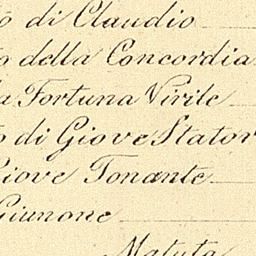 o di Claudio
o della Concordia
a Fortuna Virile
o di Giove Stator
Giove Tonante
Giunone
Matuta